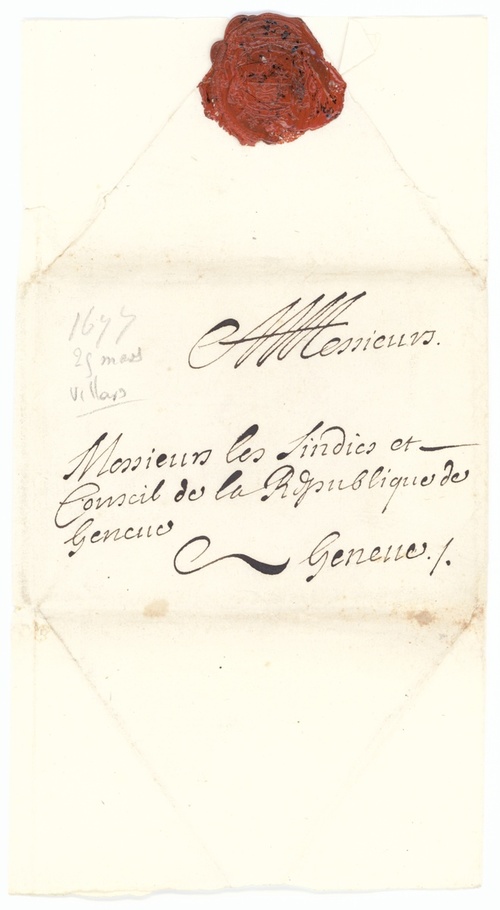 1677
25 mars
Villars
A Messieurs.
Messieurs les Sindics et
Conseil de la Republique de
Geneue
Geneue ./.